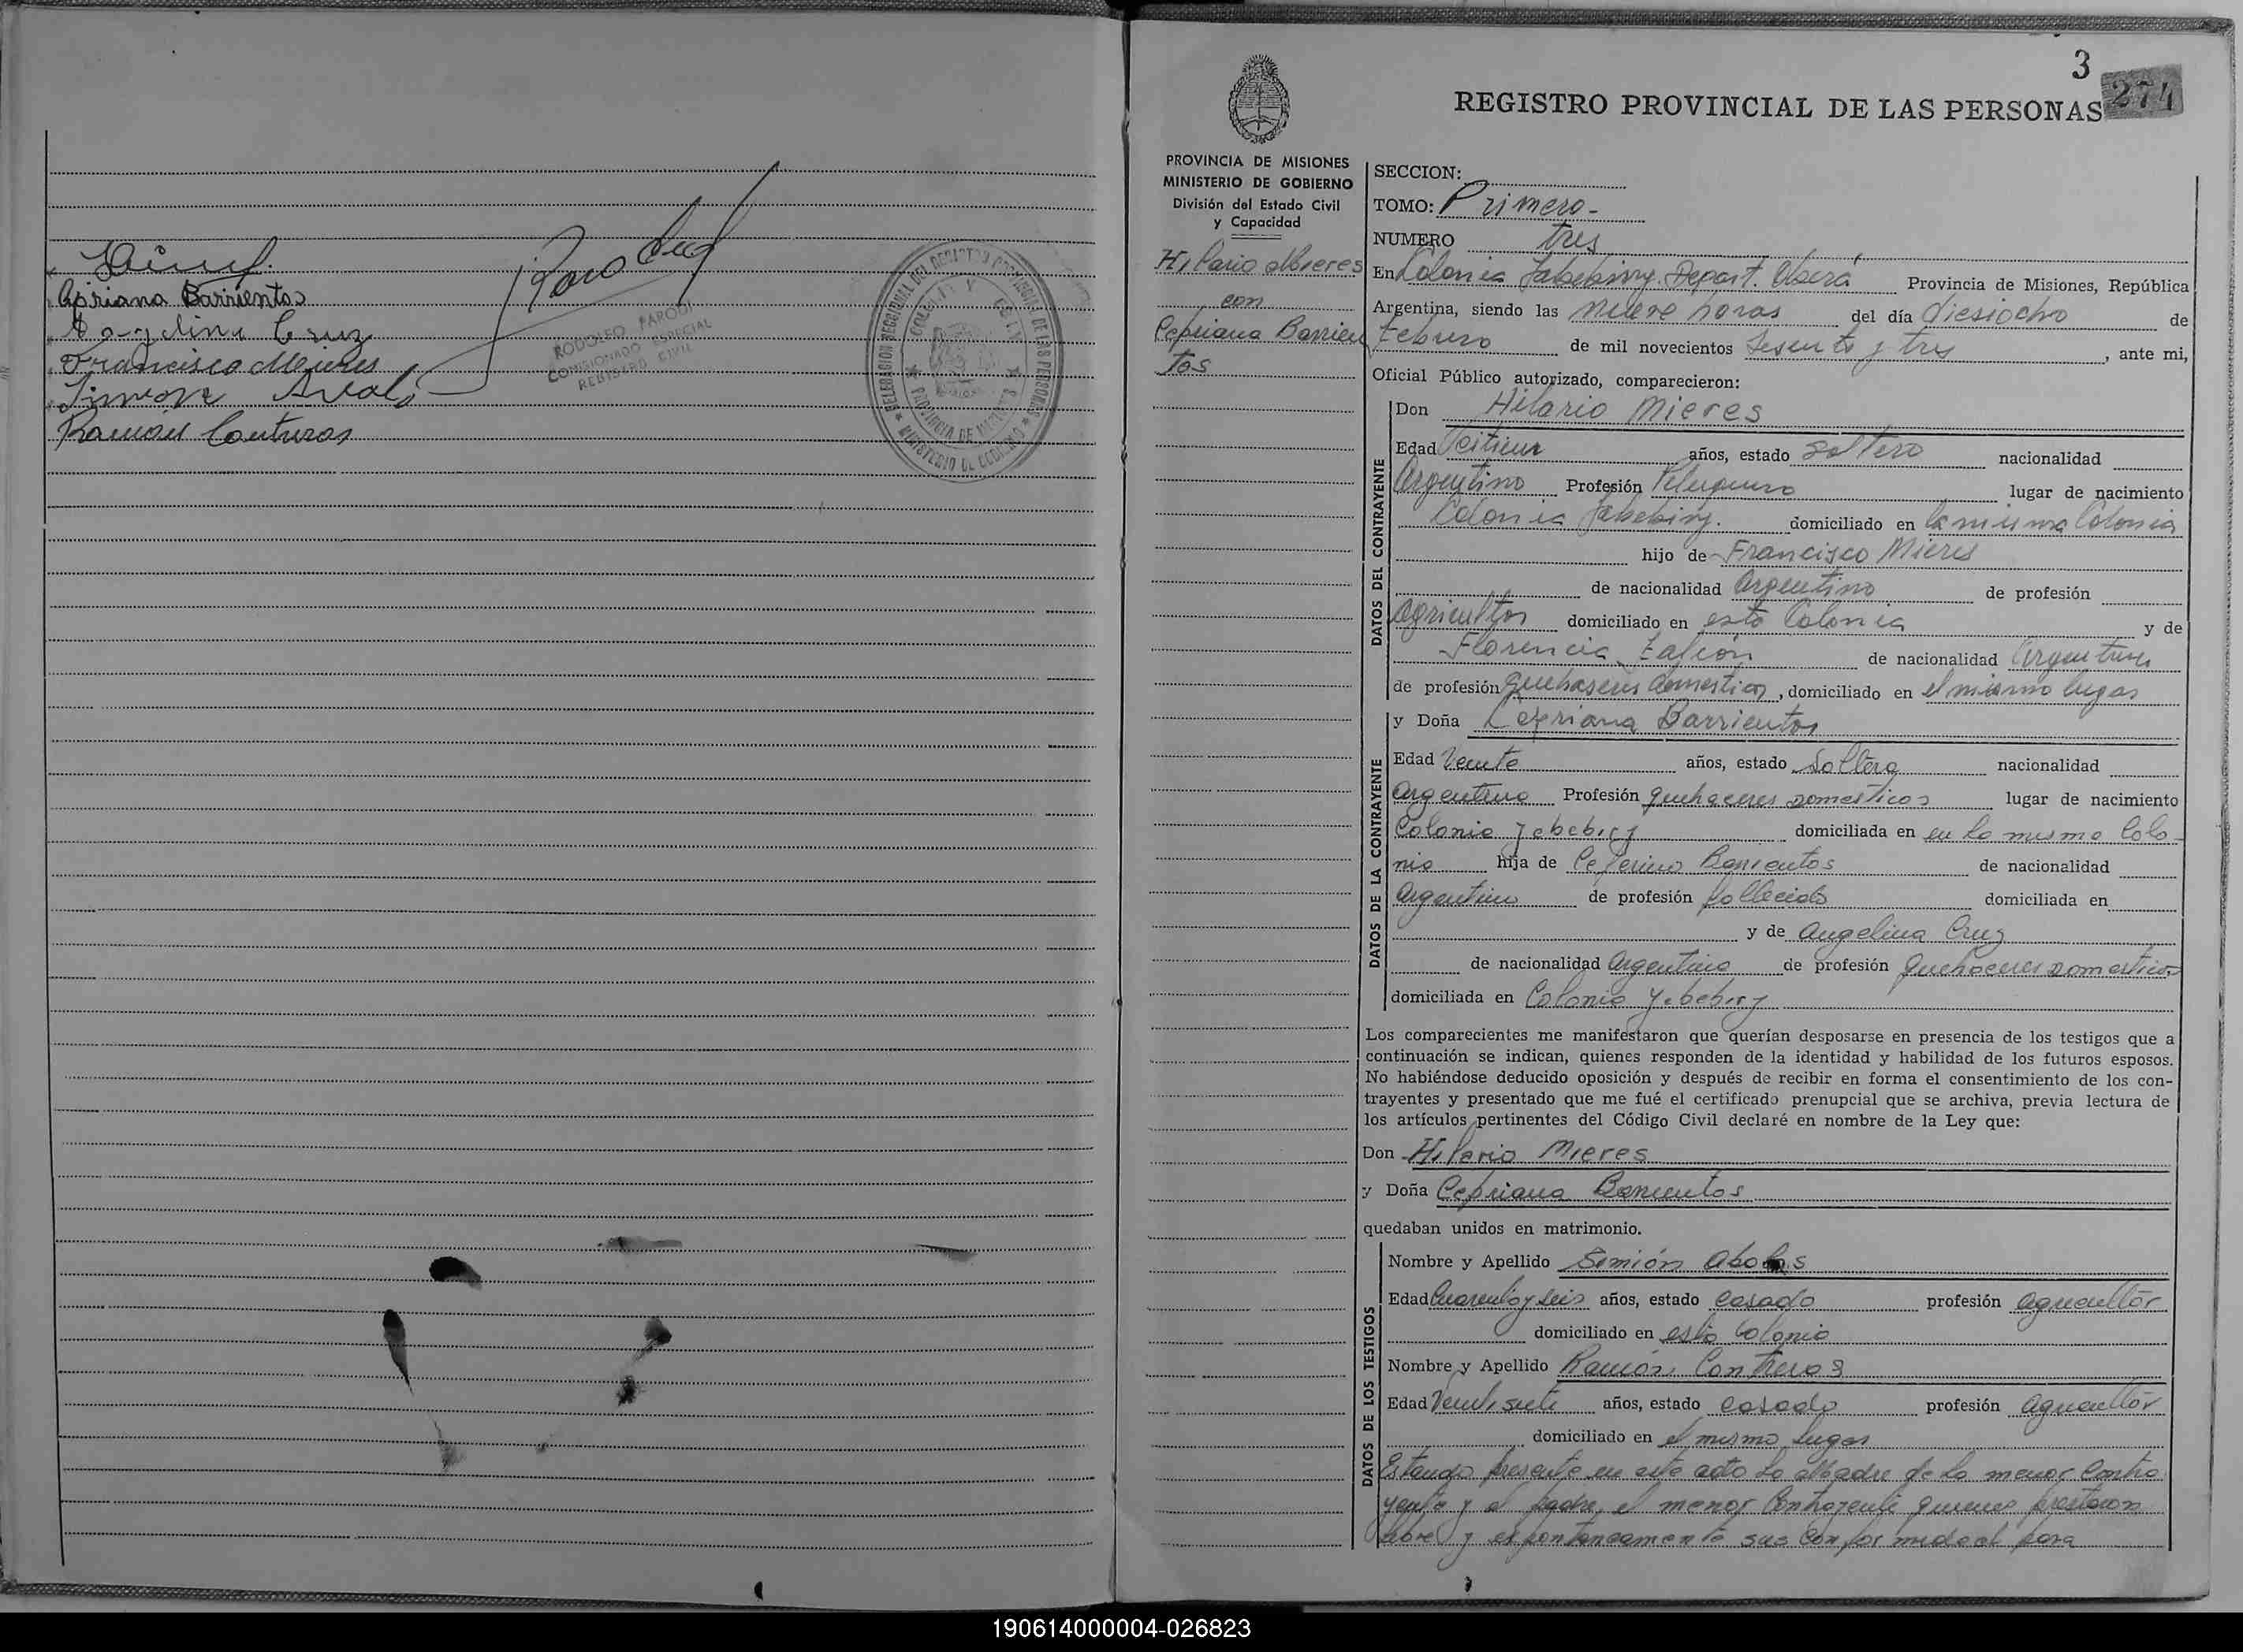 Cipriana Barrientos
Angelina Cruz
Francisco Mieres
Simeon Avalos
Ramón Contreras
RODOLFO PARODI
COMISIONADO ESPECIAL
REGISTRO CIVIL
3
274
REGISTRO PROVINCIAL DE LAS PERSONAS
PROVINCIA DE MISIONES
MINISTERIO DE GOBIERNO
División del Estado Civil
y Capacidad
Hilario Mieres
con
Cepriana Barrien
tos
SECCION:
TOMO: Primero-
NUMERO tres
En Colonia Yabebiry. Depart. Oberá Provincia de Misiones, República
Argentina, siendo las nueve horas del día diesiocho de
Febrero de mil novecientos sesenta y tres, ante mi,
Oficial Público autorizado, comparecieron:
DATOS DEL CONTRAYENTE
Don Hilario Mieres
Edad años, estado soltero nacionalidad
Argentino Profesión Peluquero lugar de nacimiento
Colonia Yabebiry. domiciliado en la misma Colonia
hijo de Francisco Mieres
de nacionalidad Argentino de profesión
Agricultor domiciliado en esta Colonia y de
Florencia de nacionalidad Argentina
de profesión quehaseres domesticos, domiciliado en el mismo lugar
DATOS DE LA CONTRAYENTE
y Doña Cepriana Barrientos
Edad Veinte años, estado Soltera nacionalidad
Argentina Profesión quehaceres domesticos lugar de nacimiento
Colonia Yabebiry domiciliada en en la misma Colo
nia hija de Ceferino Barrientos de nacionalidad
Argentino de profesión fallecido domiciliada en
y de Angelina Cruz
de nacionalidad Argentina de profesión quehaceres domesticos
domiciliada en Colonia Yabebiry
Los comparecientes me manifestaron que querían desposarse en presencia de los testigos que a
continuación se indican, quienes responden de la identidad y habilidad de los futuros esposos.
No habiéndose deducido oposición y después de recibir en forma el consentimiento de los con-
trayentes y presentado que me fué el certificado prenupcial que se archiva, previa lectura de
los artículos pertinentes del Código Civil declaré en nombre de la Ley que:
Don Hilario Mieres
y Doña Cepriana Barrientos
quedaban unidos en matrimonio.
DATOS DE LOS TESTIGOS
Nombre y Apellido Simión Abalos
Edad Cuarenta y seis años, estado casado profesión agricultor
domiciliado en esta Colonia
Nombre y Apellido Ramón Contreras
Edad Veintisiete años, estado casado profesión agricultor
domiciliado en el mismo lugar
Estando presente en este acto la Madre de la menor Contra
yente y el padre, el menor Contrayente quienes prestaron
libre y espontaneamente sus conformidad para
190614000004-026823